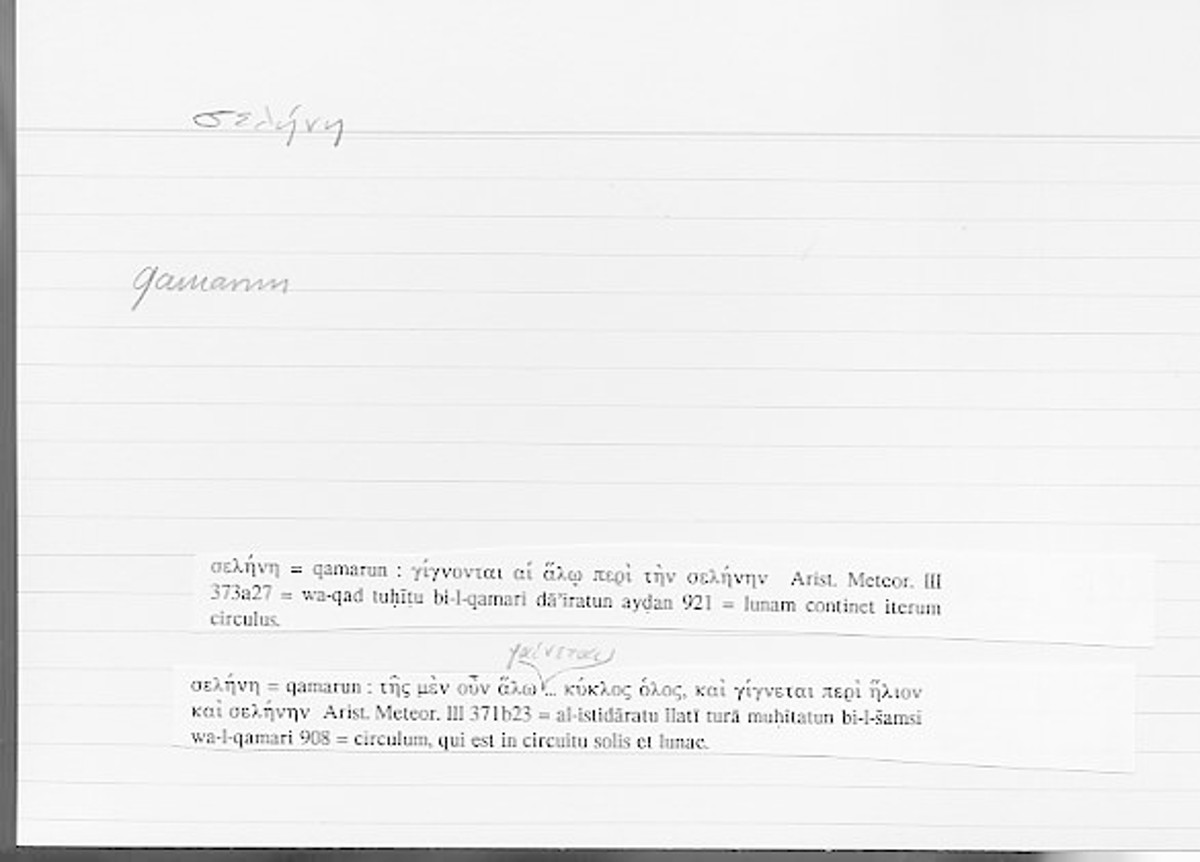 σελήνη
qamarun
σελήνη = qamarun : γίγνονται αἱ ἅλῳ περὶ τὴν σελήνην Arist. Meteor. III
373a27 = wa-qad tuḥīṭu bi-l-qamari dā’iratun ayḍan 921 = lunam continet iterum
circulus.
φαίνεται
σελήνη = qamarun : τῆς μὲν οὖν ἅλω ... κύκλος ὅλος, καὶ γίγνεται περὶ ἥλιον
καὶ σελήνην Arist. Meteor. III 371b23 = al-istidāratu llatī turā muḥīṭatun bi-l-šamsi
wa-l-qamari 908 = circulum, qui est in circuitu solis et lunae.